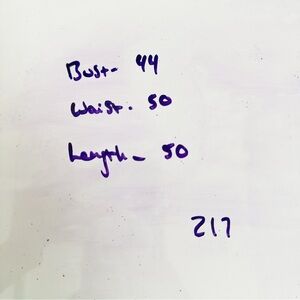 Bust- 44
Waist- 50
Length- 50
217